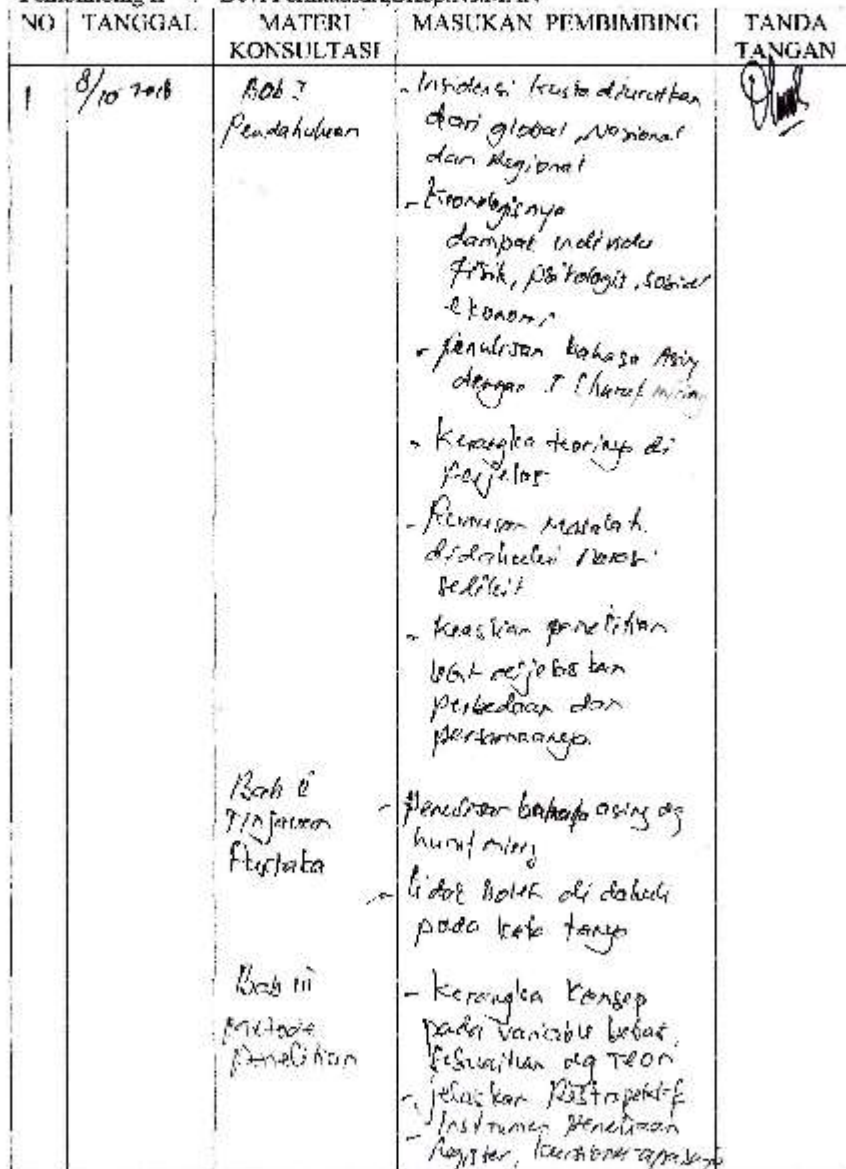 NO TANGGAL MATERI KONSULTASI MASUKAN PEMBIMBING TANDA TANGAN
1 8/10 2018 BAB I
Pendahuluan
- Insidensi kusta diurutkan
dari global, Nasional
dan Regional
- Kronologisnya
dampak individu
fisik, psikologis, sosial
ekonomi
- Penulisan bahasa Asing
dengan I (huruf miring
- Kerangka teorinya di
perjelas
- Rumusan Masalah
didahului narasi
sedikit
- Keaslian penelitian
perbedaan dan
persamaannya
Bab II
Tinjauan
Pustaka
- Penulisan bahasa asing dg
huruf miring
- tidak boleh di dahului
pada kata tanya
Bab III
Metode
Penelitian
- Kerangka Konsep
pada variable bebas,
Sesuaikan dg Teori
- jelaskan
- Instrumen Penelitian
Register, kuesioner